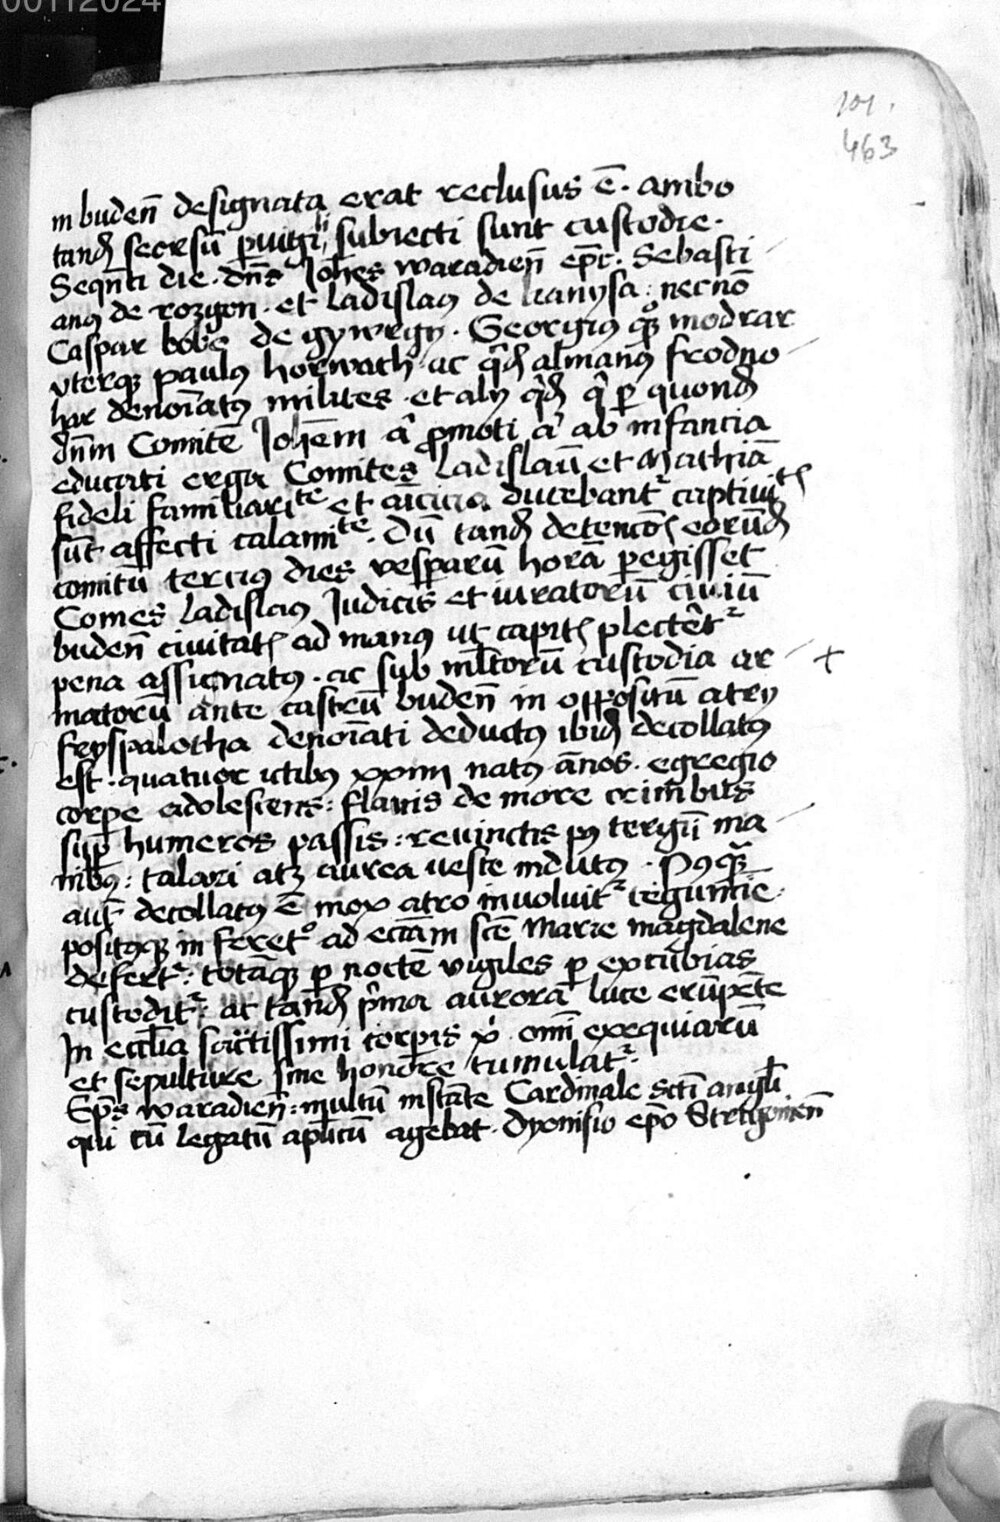 00112024
101.
463
in budeñ designata erat reclusus ē. ambo
tandē seorsū pvigili subiecti sunt custodie.
Seqñti die. dñs Johēs waradieñ epc. Sebasti
anus de rozgon. et ladislaus de kanysa: necnō
Caspar bobus de gywrgy. Georgius quoque modrar
uterque paulus horwath. ac quidē almanus frodno
har denoīatus milites. et alij quidē qui per quondā
dñm Comitē Johēm aut promoti aut ab infancia
educati erga Comites ladislaū et Mathiā
fideli familiaritate et amicicia ducebantur captivitatis
sūt affecti calamitate. Dū tandē detencōis eorūdē
comitū tercius dies vesperarū horā peregisset
Comes ladislaus Judicis et iuratorū civiū
budeñ civitatis ad manus ut capitis plecteretur
pena assignatus. ac sub multorū custodia ar
matorū ante castrū budeñ in oppositū atrij
fryspalotha denoīati deductus ibidē decollatus
est. quatuor ictibus xxiiij natus ānos. egregio
corpore adolescens: flavis de more crinibus
super humeros passis: revinctis post tergū ma
nibus: talari atque aurea veste indutus. Postquam
autē decollatus ē mox atro involvitur tegumine
positusque in feretro ad eccām scē Marie magdalene
defertur: totāque per noctē vigiles per excubias
custoditur: at tandē prima aurora luce erūpēte
In ecclia sāctissimi corporis xi omni exequiarū
et sepulture sine honore tumulatur.
Eps waradieñ: multū instante Cardinale scti angeli
qui tū legatū aplicū agebat. Dyonisio epo Strigonieñ